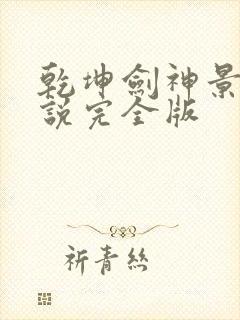 乾坤劍神景
說完全版
祈青絲